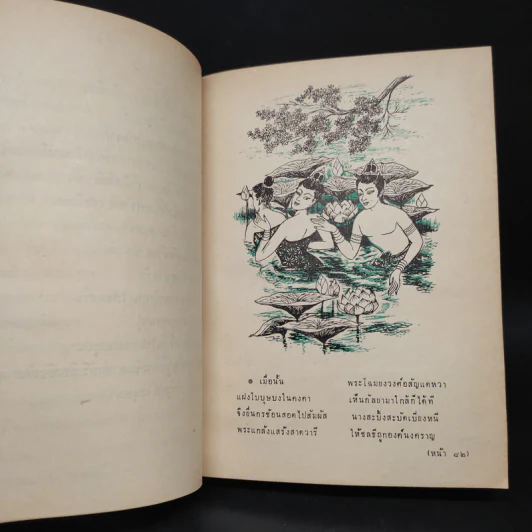 ๏ เมื่อนั้น พระโฉมยงวงศ์อสัญแดหวา
แฝงใบบุษบงในคงคา เห็นกัลยามาใกล้ก็ได้ที
จึงยื่นกรช้อนสอดไปสัมผัส นางสะบิ้งสะบัดเบี่ยงหนี
พระแกล้งแสร้งสาดวารี ให้ชลธีถูกองค์นงคราญ
(หน้า ๔๒)